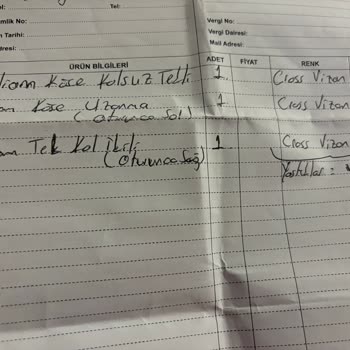 Tel:
mlik No:
Vergi No:
n Tarihi:
Vergi Dairesi:
dresi:
Mail Adresi:
ÜRÜN BİLGİLERİ ADET FİYAT RENK
Köşe Kolsuz Tekli 1 Cross Vizon
Köşe Uzanma 1 Cross Vizon
(Oturunca Sol)
Tek Kol İkili 1 Cross Vizon
(Oturunca Sağ)
Yastıklar :